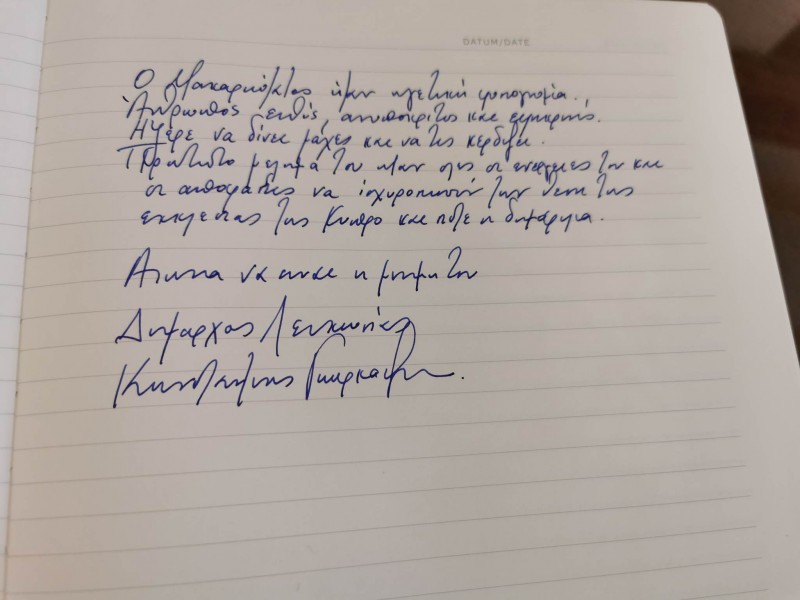 DATUM/DATE
Ο Μακαριώτατος ήταν ηγετική φυσιογνωμία.
Άνθρωπος ευθύς, ανυπόκριτος και ειλικρινής.
Ήξερε να δίνει μάχες και να τις κερδίζει.
Πρωτίστο μέλημά του ήταν όλες οι ενέργειες του και
οι αποφάσεις να ισχυροποιούν την θέση της
εκκλησίας της Κύπρου και ποτέ η δημαρχία.
Αιωνία να είναι η μνήμη του
Δήμαρχος Λευκωσίας
Κωνσταντίνος Γιωρκάτζης.